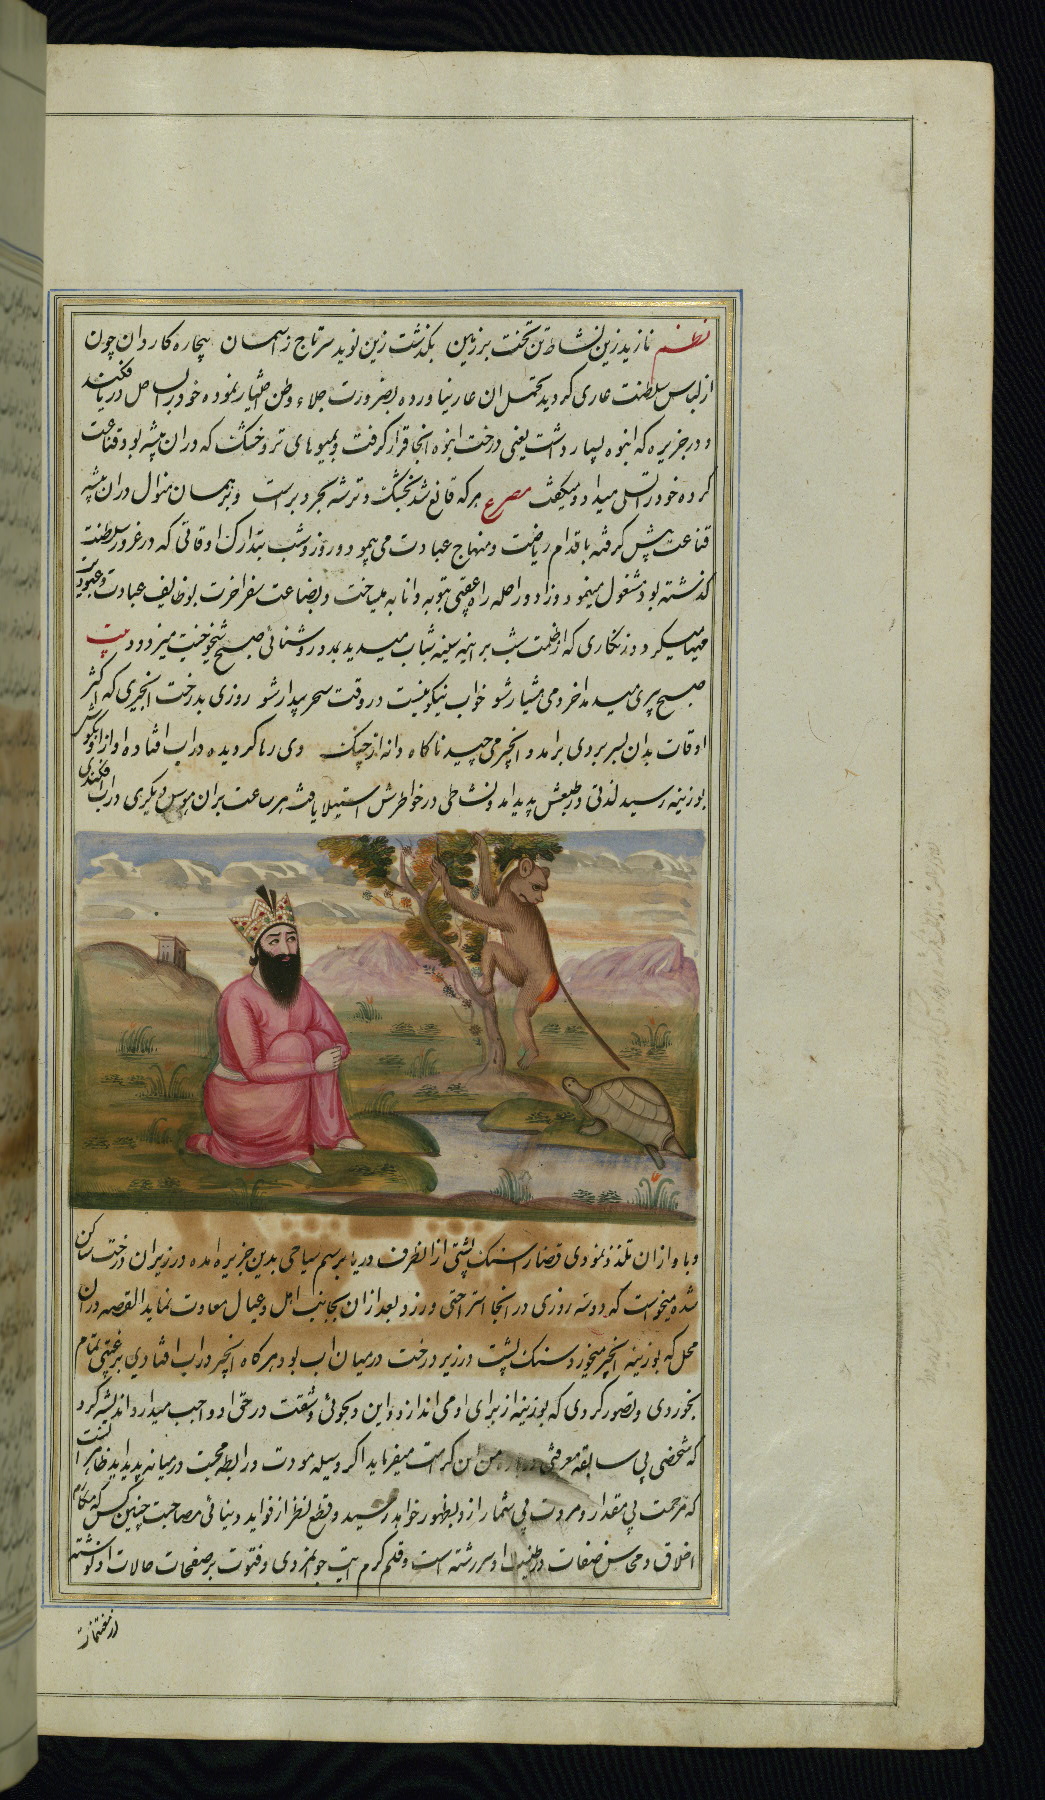 نظم نازید زین نشاط تن تخت بر زمین بگذشت زین نوید سر تاج زاسمان بیچاره کاردان چون
از لباس سلطنت عاری کردید تحمل ان عار نیاورده بضرورت جلاء وطن اختیار نموده خود را بساحل دریا فکند
و در جزیره که انبوه بسیار داشت یعنی درخت انبوه انجا قرار گرفت و بمیوهای تر و خشک که دران بیشه بود قناعت
کرده خود را تسلی میداد و میگفت مصرع هر که قانع شد بخشک و تر شه بحر و برست و بر همان منوال دران بیشه
قناعت پیش گرفته باقدام ریاضت و منهاج عبادت می پیمود و روز و شب بتدارک اوقاتی که در غرور سلطنت
کذشته بود مشغول مینمود و زاد و راحله راه عقبی بتوبه و انابه میساخت و بضاعت سفر اخرت بوظایف عبادت و عبودیت
مهیا میکرد و زنکاری که از ظلمت شب بر اینه سینه شباب میدید بمدد روشنائی صبح شیخوخیت میزدود بیت
صبح پیری میدمد اخر دمی هشیار شو خواب نیکو نیست در وقت سحر بیدار شو روزی بدرخت انجیری که اکثر
اوقات بدان بسر بردی برامد و انجیر می چید ناکاه دانه از چنک وی رها کردیده در اب افتاد و اواز ان بکوش
بوزینه رسید لذتی در طبعش پدید امد و نشاطی در خواطرش استیلا یافت هر ساعت بران هوس دیکری در اب افکندی
و با واز ان تلذذ نمودی قضا را سنک پشتی از انطرف دریا برسم سیاحی بدین جزیره امده در زیر ان درخت ساکن
شده میخواست که دو سه روزی در انجا استراحتی ورزد و بعد ازان بجانب اهل و عیال معاودت نماید القصه دران
محل که بوزینه انجیر میخورد سنک پشت در زیر درخت در میان اب بود هر کاه انجیر در اب افتادی برغبتی تمام
بخوردی و تصور کردی که بوزینه از برای او می اندازد و این دلجوئی و شفقت در حق او واجب میدارد اندیشه کرد
که شخصی بی سابقه معرفتی در باره من این کرامت میفرماید اکر وسیله مودت و رابطه محبت در میانه پدید اید ظاهر است
که مرحمت بی مقدار و مروت بی شمار ازو بظهور خواهد رسید و قطع نظر از فواید دنیائی مصاحبت چنین کس که مکارم
اخلاق و محاسن صفات در طینت او سررشته است و قلم کرم ایت جوانمردی و فتوت بر صفحات حالات او نوشته
از مغتنمات